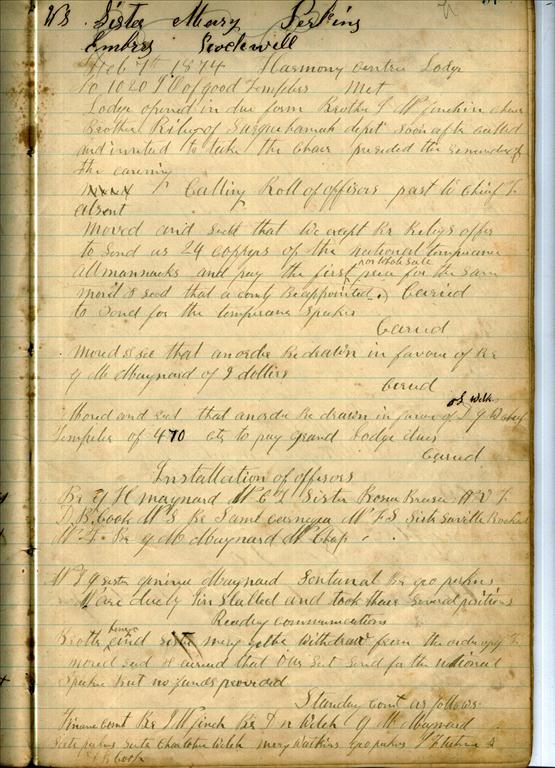 W S Sister Mary Perkins
Embers Rockwell
Feb 7th 1874 Harmony centre Lodge
No 1020 I O of good Templers Met
Lodge opened in due form Brother J W chair
Brother Riley of Susquehannah depot soon after called
and invited to take the Chair presided the remainder of
the evening
Calling Roll of offisors past W Chief T
absent
Moved and secd that we accept Br Rileys offer
to Send us 24 coppys of the national temperance
allmannacks and pay the first price for the sam
or Whole sale
mov'd & secd that a comty Be appointed Caried
to Send for the temperance Speker
Caried
Moved & sec that an order Be drawn in favour of Br
y M Maynard of dollers
Caried
Moved and secd that an order Be drawn in favour of
of Welch
Templer of 4 70 cts to pay Grand Lodge dues
Caried
Installation of offisors
Br y H maynard W C T Sister W V T
D. B. Cook W S Br Saml W F S Sister
W T Br y M Maynard W Chap
W I G sister Maynard Sentanal Br geo perkins
Ware duely Finstalled and took there Several positions
Reading communications
Brother and sister mery Withdraw from the order
moved secd & caried that Our Sect Send for the national
Speker But no funds provided
Standing comt as follows
Finance comt Br J W Finch Br T n Welch y M Maynard
Sister perkins Sister Charlotte Welch mery Watkins geo perkins
Cook